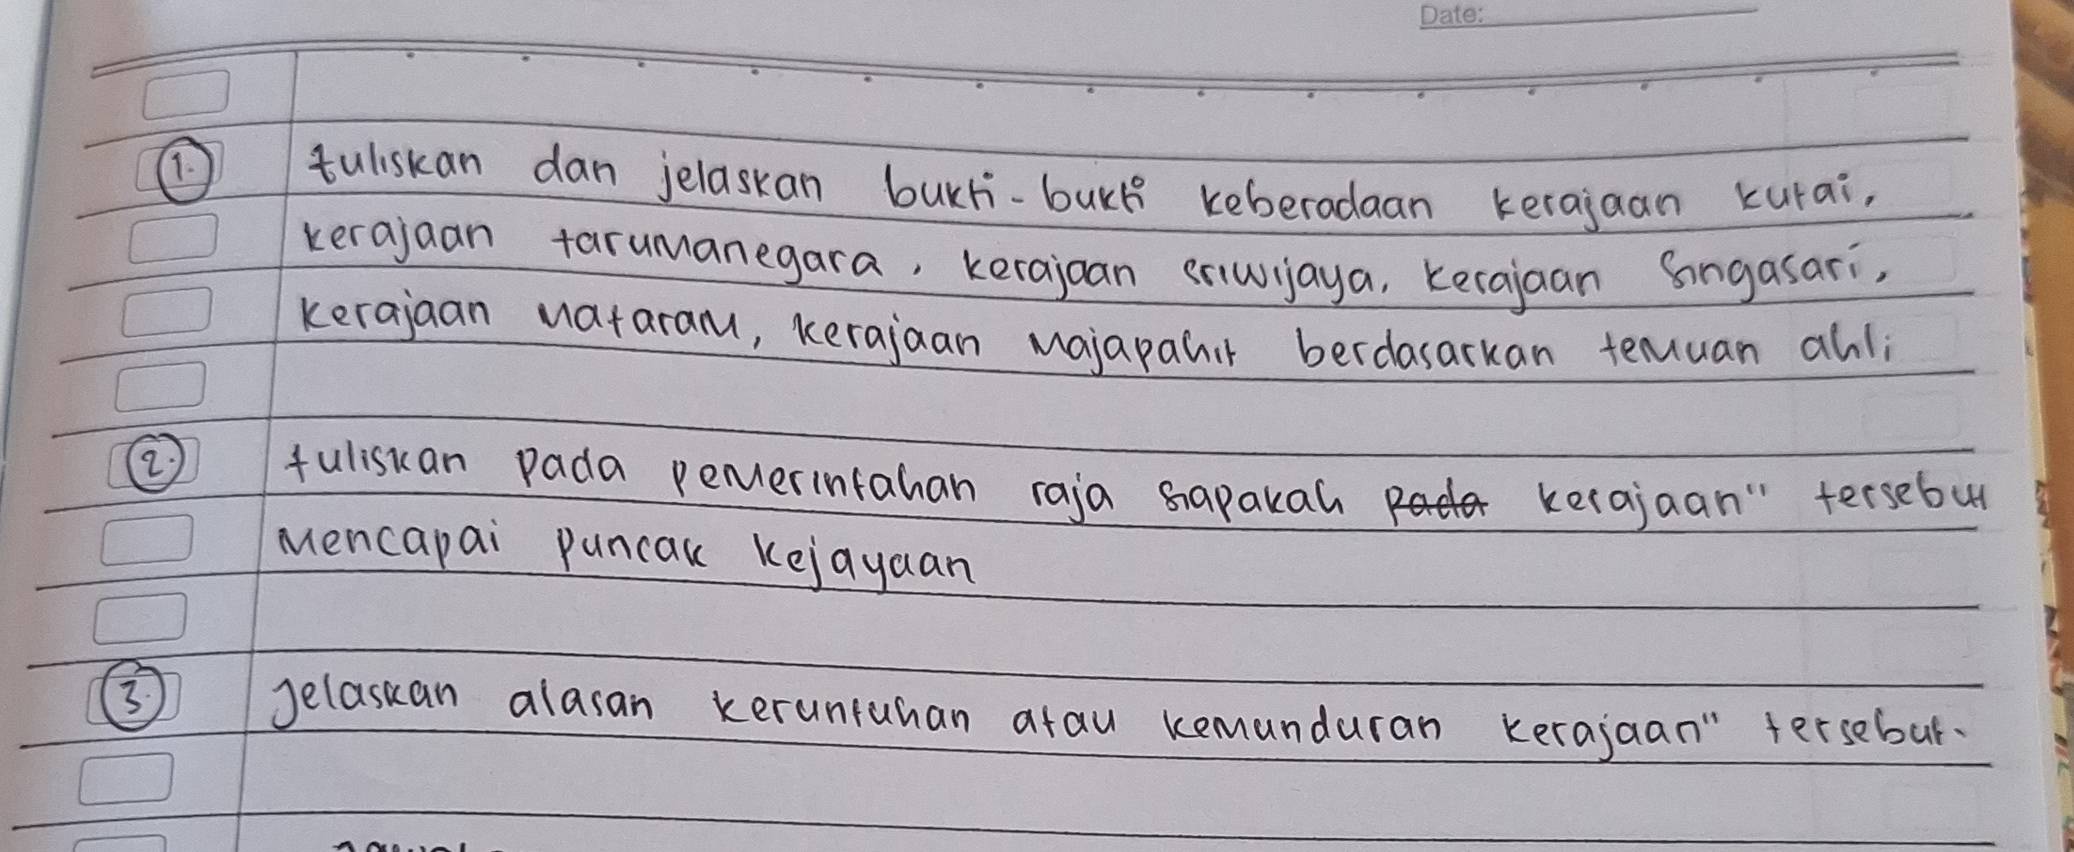 Date:
1. tuliskan dan jelaskan bukti-bukti keberadaan kerajaan kutai,
kerajaan tarumanegara, kerajaan sriwijaya, kerajaan singasari,
kerajaan Mataram, kerajaan Majapahit berdasarkan temuan ahli
2. tuliskan pada pemerintahan raja siapakah pada kerajaan" tersebut
Mencapai puncak kejayaan
3. Jelaskan alasan keruntuhan atau kemunduran kerajaan" tersebut.